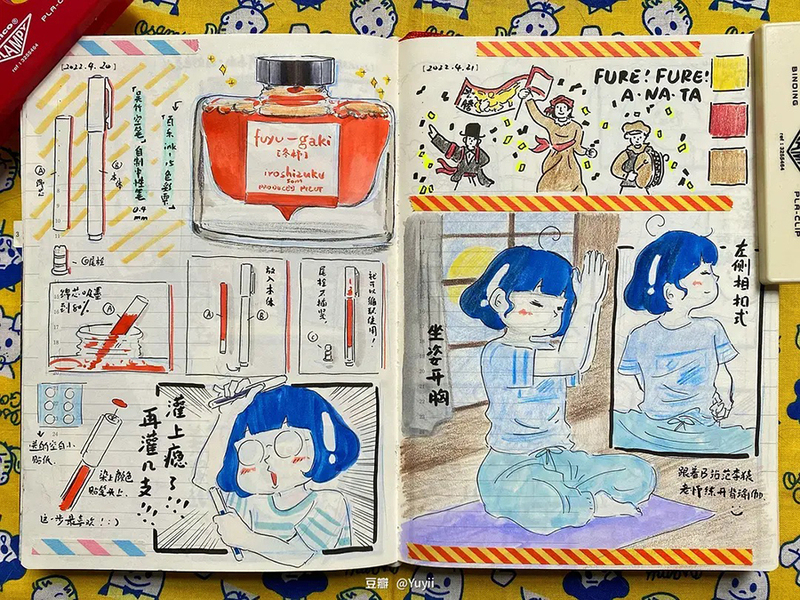 [2022.4.20]
吴竹空笔,自制中性笔
0.4
mm
百乐 ink·15色彩墨
A
笔芯
B
本体
C尾栓
fuyu-gaki
[冬柿]
iroshizuku
50ml
PRODUCED PILOT
绵芯吸墨
到80%
A
放入本体
A
B
尾栓又插紧,
C
就可以编织使用!
送的空白小
贴纸.
染上颜色
贴笔头上.
这一步最喜欢!:)
灌上瘾了…
再灌几支!!!
[2022.4.21]
FURE! FURE!
A·NA·TA
坐姿开胸
左侧相扣式
老师练开背瑜伽
BINDING
PLR-CLIP
豆瓣 @Yuyii